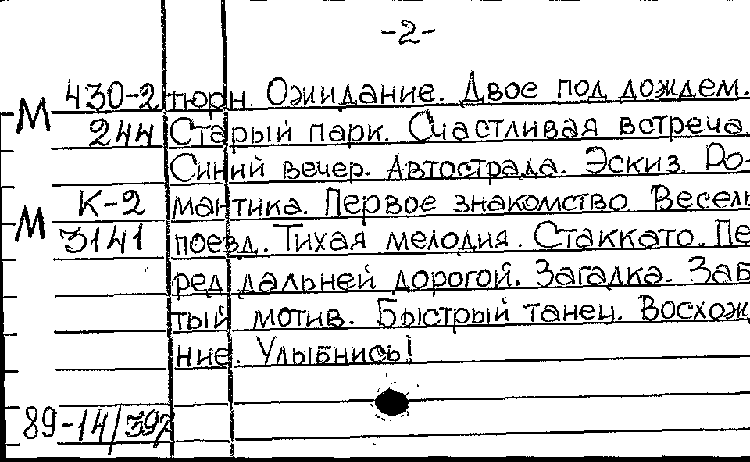 -2-
М 430-2 тюрн. Ожидание. Двое под дождем.
244 Старый парк. Счастливая встреча.
Синий вечер. Автострада. Эскиз. Ро-
М К-2 мантика. Первое знакомство. Весель
3141 поезд. Тихая мелодия. Стаккато. Пе
ред дальней дорогой. Загадка. Заб
тый мотив. Быстрый танец. Восхож
ние. Улыбнись!
89-14/397